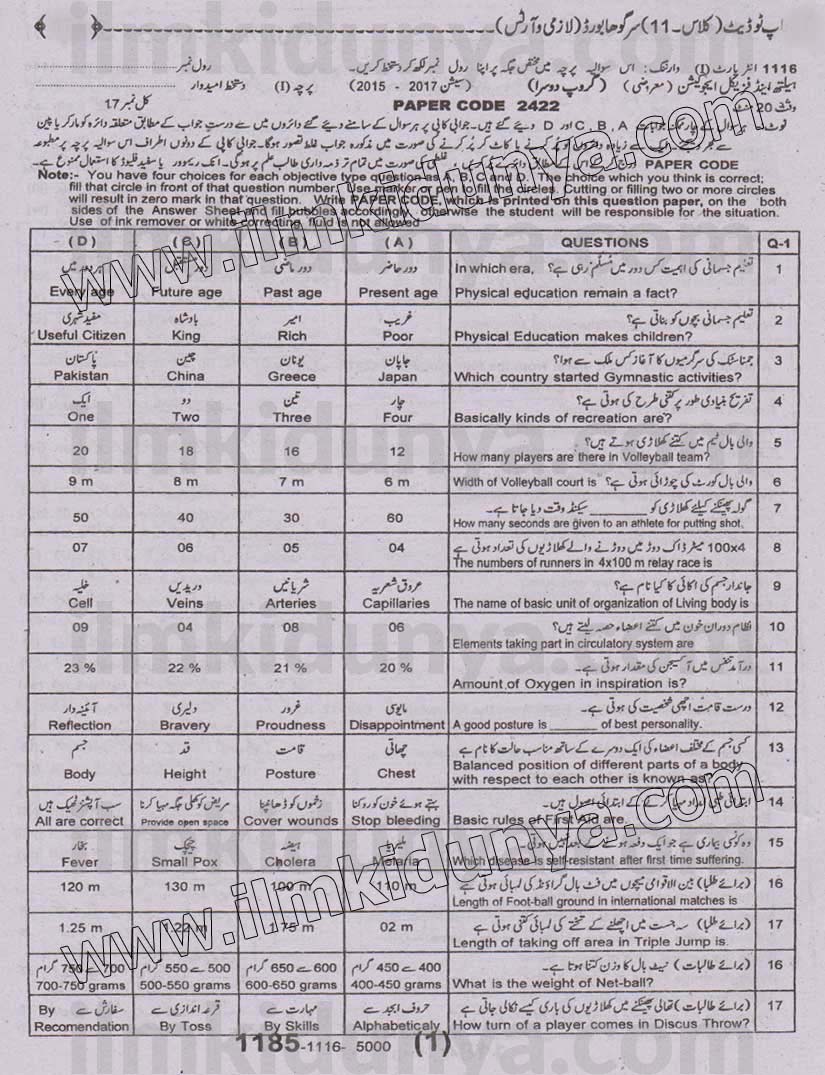 اپ ٹو ڈیٹ (کلاس۔11) سرگودھا بورڈ (لازمی و آرٹس)
1116 انٹر پارٹ (I) وارننگ: اس سوالیہ پرچہ میں مختص جگہ پر اپنا رول نمبر لکھ کر دستخط کریں۔ رول نمبر
ہیلتھ اینڈ فزیکل ایجوکیشن (معروضی) (گروپ دوسرا) (سیشن 2017 - 2015) پرچہ (I) دستخط امیدوار
وقت 20 منٹ PAPER CODE 2422 کل نمبر 17
نوٹ:۔ ہر سوال کے چار ممکنہ جوابات C , B , A اور D دیئے گئے ہیں۔ جوابی کاپی پر ہر سوال کے سامنے دیئے گئے دائروں میں سے درست جواب کے مطابق متعلقہ دائرہ کو مارکر یا پین
سے بھر کر دائروں کو کرنے یا کاٹ کر پُر کرنے کی صورت میں مذکورہ جواب غلط تصور ہوگا۔ جوابی کاپی کے دونوں اطراف اس سوالیہ پرچہ پر مطبوعہ
PAPER CODE صورت میں تمام تر ذمہ داری طالب علم پر ہوگی۔ انک ریموور یا سفید فلیوڈ کا استعمال ممنوع ہے۔
Note:- You have four choices for each objective type question as A, B, C and D. The choice which you think is correct;
fill that circle in front of that question number. Use marker or pen to fill the circles. Cutting or filling two or more circles
will result in zero mark in that question. Write PAPER CODE, which is printed on this question paper, on the both
sides of the Answer Sheet and fill bubbles accordingly, otherwise the student will be responsible for the situation.
Use of ink remover or white correcting fluid is not allowed
( D ) ( C ) ( B ) ( A ) QUESTIONS Q-1
ہر دور میں دور مستقبل دور ماضی دور حاضر تعلیم جسمانی کی اہمیت کس دور میں مُسلّم رہی ہے؟ In which era, 1
Every age Future age Past age Present age Physical education remain a fact?
مفید شہری بادشاہ امیر غریب تعلیم جسمانی بچوں کو بناتی ہے؟ 2
Useful Citizen King Rich Poor Physical Education makes children?
پاکستان چین یونان جاپان جمناسٹک کی سرگرمیوں کا آغاز کس ملک سے ہوا؟ 3
Pakistan China Greece Japan Which country started Gymnastic activities?
ایک دو تین چار تفریح بنیادی طور پر کتنی طرح کی ہوتی ہے؟ 4
One Two Three Four Basically kinds of recreation are?
والی بال ٹیم میں کتنے کھلاڑی ہوتے ہیں؟ 5
20 18 16 12 How many players are there in Volleyball team?
9 m 8 m 7 m 6 m والی بال کورٹ کی چوڑائی ہوتی ہے؟ Width of Volleyball court is 6
گولہ پھینکنے کیلئے کھلاڑی کو ________ سیکنڈ وقت دیا جاتا ہے۔ 7
50 40 30 60 How many seconds are given to an athlete for putting shot.
07 06 05 04 100x4 میٹر ڈاک دوڑ میں دوڑنے والے کھلاڑیوں کی تعداد ہوتی ہے 8
The numbers of runners in 4x100 m relay race is
خلیہ وریدیں شریانیں عروق شعریہ جاندار جسم کی اکائی کا کیا نام ہے؟ 9
Cell Veins Arteries Capillaries The name of basic unit of organization of Living body is
09 04 08 06 نظام دوران خون میں کتنے اعضاء حصہ لیتے ہیں؟ 10
Elements taking part in circulatory system are
23 % 22 % 21 % 20 % درآمد تنفس میں آکسیجن کی مقدار ہوتی ہے۔ 11
Amount of Oxygen in inspiration is?
آئینہ دار دلیری غرور مایوسی درست قامت اچھی شخصیت کی ہوتی ہے۔ 12
Reflection Bravery Proudness Disappointment A good posture is _______ of best personality.
جسم قد قامت چھاتی کسی جسم کے مختلف اعضاء کی ایک دوسرے کے ساتھ مناسب حالت کا نام ہے 13
Body Height Posture Chest Balanced position of different parts of a body
with respect to each other is known as?
سب آپشنز ٹھیک ہیں مریض کو کھلی جگہ مہیا کرنا زخموں کو ڈھانپنا بہتے ہوئے خون کو روکنا ابتدائی طبی امداد مہیا کرنے کے ابتدائی اصول ہیں۔ 14
All are correct Provide open space Cover wounds Stop bleeding Basic rules of First Aid are.
بخار چیچک ہیضہ ملیریا وہ کونسی بیماری ہے جو ایک دفعہ ہونے کے بعد نہیں ہوتی۔ 15
Fever Small Pox Cholera Melaria Which disease is self-resistant after first time suffering.
120 m 130 m 100 m 110 m (برائے طلبا) بین الاقوامی میچوں میں فٹ بال گراؤنڈ کی لمبائی ہوتی ہے 16
Length of Foot-ball ground in international matches is
1.25 m 1.22 m 1.75 m 02 m (برائے طلبا) سہ جست میں اچھلنے کے تختے کی لمبائی کتنی ہوتی ہے 17
Length of taking off area in Triple Jump is.
700 سے 750 گرام 500 سے 550 گرام 600 سے 650 گرام 400 سے 450 گرام (برائے طالبات) نیٹ بال کا وزن کتنا ہوتا ہے۔ 16
700-750 grams 500-550 grams 600-650 grams 400-450 grams What is the weight of Net-ball?
سفارش سے قرعہ اندازی سے مہارت سے حروف ابجد سے (برائے طالبات) تھالی پھینکنے میں کھلاڑیوں کی باری کیسے نکالی جاتی ہے 17
By Recomendation By Toss By Skills Alphabeticaly How turn of a player comes in Discus Throw?
1185-1116- 5000 (1)
www.ilmkidunya.com
www.ilmkidunya.com
ilmkidunya.com